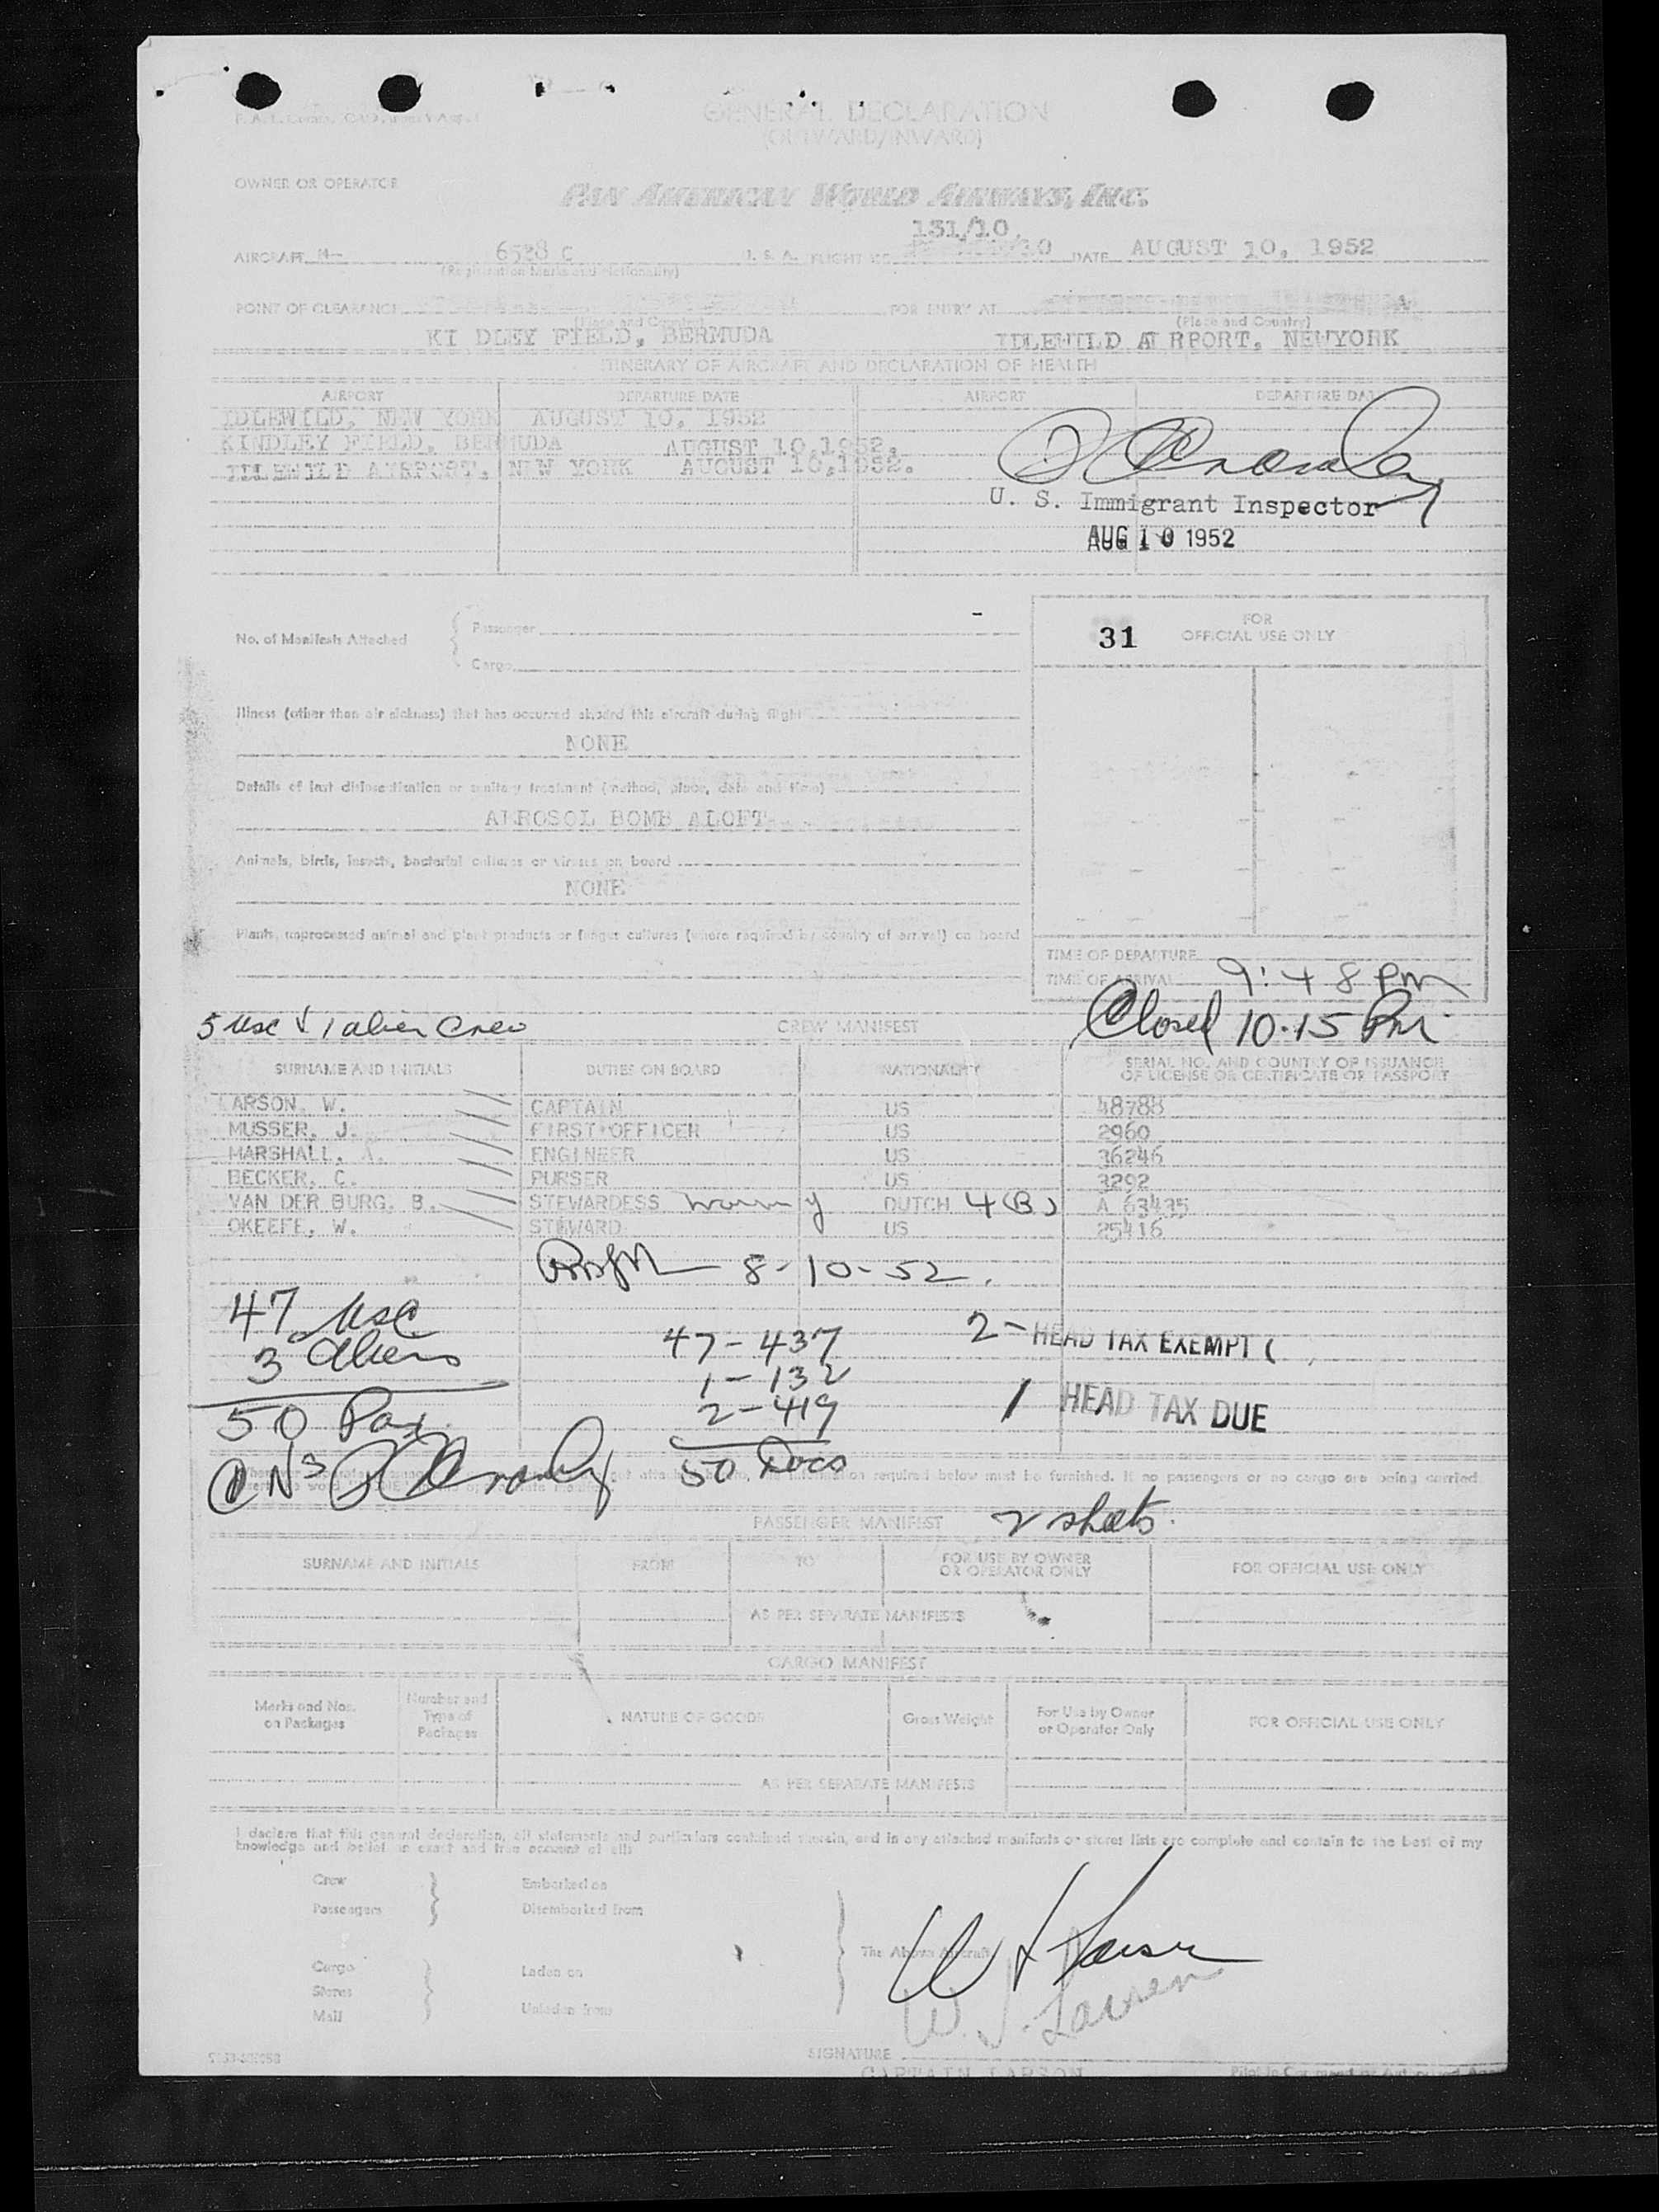 GENERAL DECLARATION
(OUTWARD/INWARD)
OWNER OR OPERATOR
PAN AMERICAN WORLD AIRWAYS, INC.
131/10
AIRCRAFT N- 6528 C U. S. A. FLIGHT NO. 10 DATE AUGUST 10, 1952
(Registration Marks and Nationality)
POINT OF CLEARANCE FOR ENTRY AT
(Place and Country) (Place and Country)
KI DLEY FIELD, BERMUDA IDLEWILD AIRPORT, NEWYORK
ITINERARY OF AIRCRAFT AND DECLARATION OF HEALTH
AIRPORT DEPARTURE DATE AIRPORT DEPARTURE DATE
IDLEWILD, NEW YORK AUGUST 10, 1952
KINDLEY FIELD, BERMUDA AUGUST 10,1952.
IDLEWILD AIRPORT, NEW YORK AUGUST 10,1952.
U. S. Immigrant Inspector
AUG 10 1952
FOR
31 OFFICIAL USE ONLY
No. of Manifests Attached Passenger
Cargo
Illness (other than air sickness) that has occurred aboard this aircraft during flight
NONE
Details of last disinsectization or sanitary treatment (method, place, date and time)
AEROSOL BOMB ALOFT
Animals, birds, insects, bacterial cultures or viruses on board
NONE
Plants, unprocessed animal and plant products or fungus cultures (where required by country of arrival) on board
TIME OF DEPARTURE
TIME OF ARRIVAL 9:48 PM
Closed 10.15 Pm.
5 usc & 1 alien Crew CREW MANIFEST
SURNAME AND INITIALS DUTIES ON BOARD NATIONALITY SERIAL NO. AND COUNTRY OF ISSUANCE
OF LICENSE OR CERTIFICATE OR PASSPORT
LARSON, W. CAPTAIN US 48788
MUSSER, J. FIRST OFFICER US 2960
MARSHALL, A. ENGINEER US 36246
BECKER, C. PURSER US 3292
VAN DER BURG, B. STEWARDESS DUTCH 4(B) A 63435
OKEEFE, W. STEWARD US 25416
8-10-52.
47 usc
3 Aliens
50 Pax.
47-437
1-132
2-419
50 Docs
2 - HEAD TAX EXEMPT (
1 HEAD TAX DUE
on required below must be furnished. If no passengers or no cargo are being carried
PASSENGER MANIFEST 2 sheets.
SURNAME AND INITIALS FROM TO FOR USE BY OWNER
OR OPERATOR ONLY FOR OFFICIAL USE ONLY
AS PER SEPARATE MANIFESTS
CARGO MANIFEST
Marks and Nos.
on Packages Number and
Type of
Packages NATURE OF GOODS Gross Weight For Use by Owner
or Operator Only FOR OFFICIAL USE ONLY
AS PER SEPARATE MANIFESTS
I declare that this general declaration, all statements and particulars contained therein, and in any attached manifests or stores lists are complete and contain to the best of my
knowledge and belief an exact and true account of all:
Crew Embarked on
Passengers Disembarked from
The Above Aircraft
Cargo Laden on
Stores
Mail Unladen from
W. J. Larsen
SIGNATURE
CAPTAIN LARSON